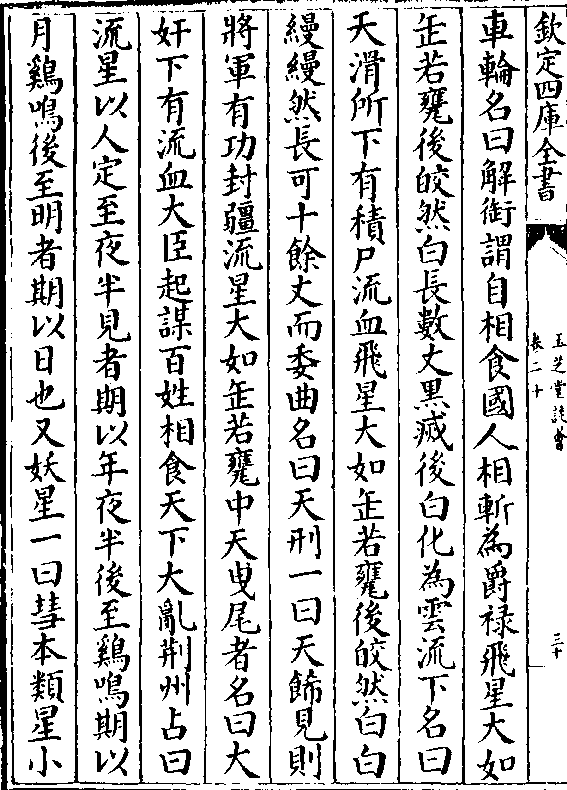 欽定四庫全書
玉芝堂談薈
卷二十
三十
車輪名曰解銜謂自相食國人相斬為爵禄飛星大如
缶若甕後皎然白長數丈黑㓕後白化為雲流下名曰
天滑所下有積尸流血飛星大如缶若甕後皎然白白
縵縵然長可十餘丈而委曲名曰天刑一曰天飾見則
將軍有功封疆流星大如缶若甕中天曳尾者名曰大
奸下有流血大臣起謀百姓相食天下大亂荆州占曰
流星以人定至夜半見者期以年夜半後至鷄鳴期以
月鷄鳴後至明者期以日也又妖星一曰彗本類星小